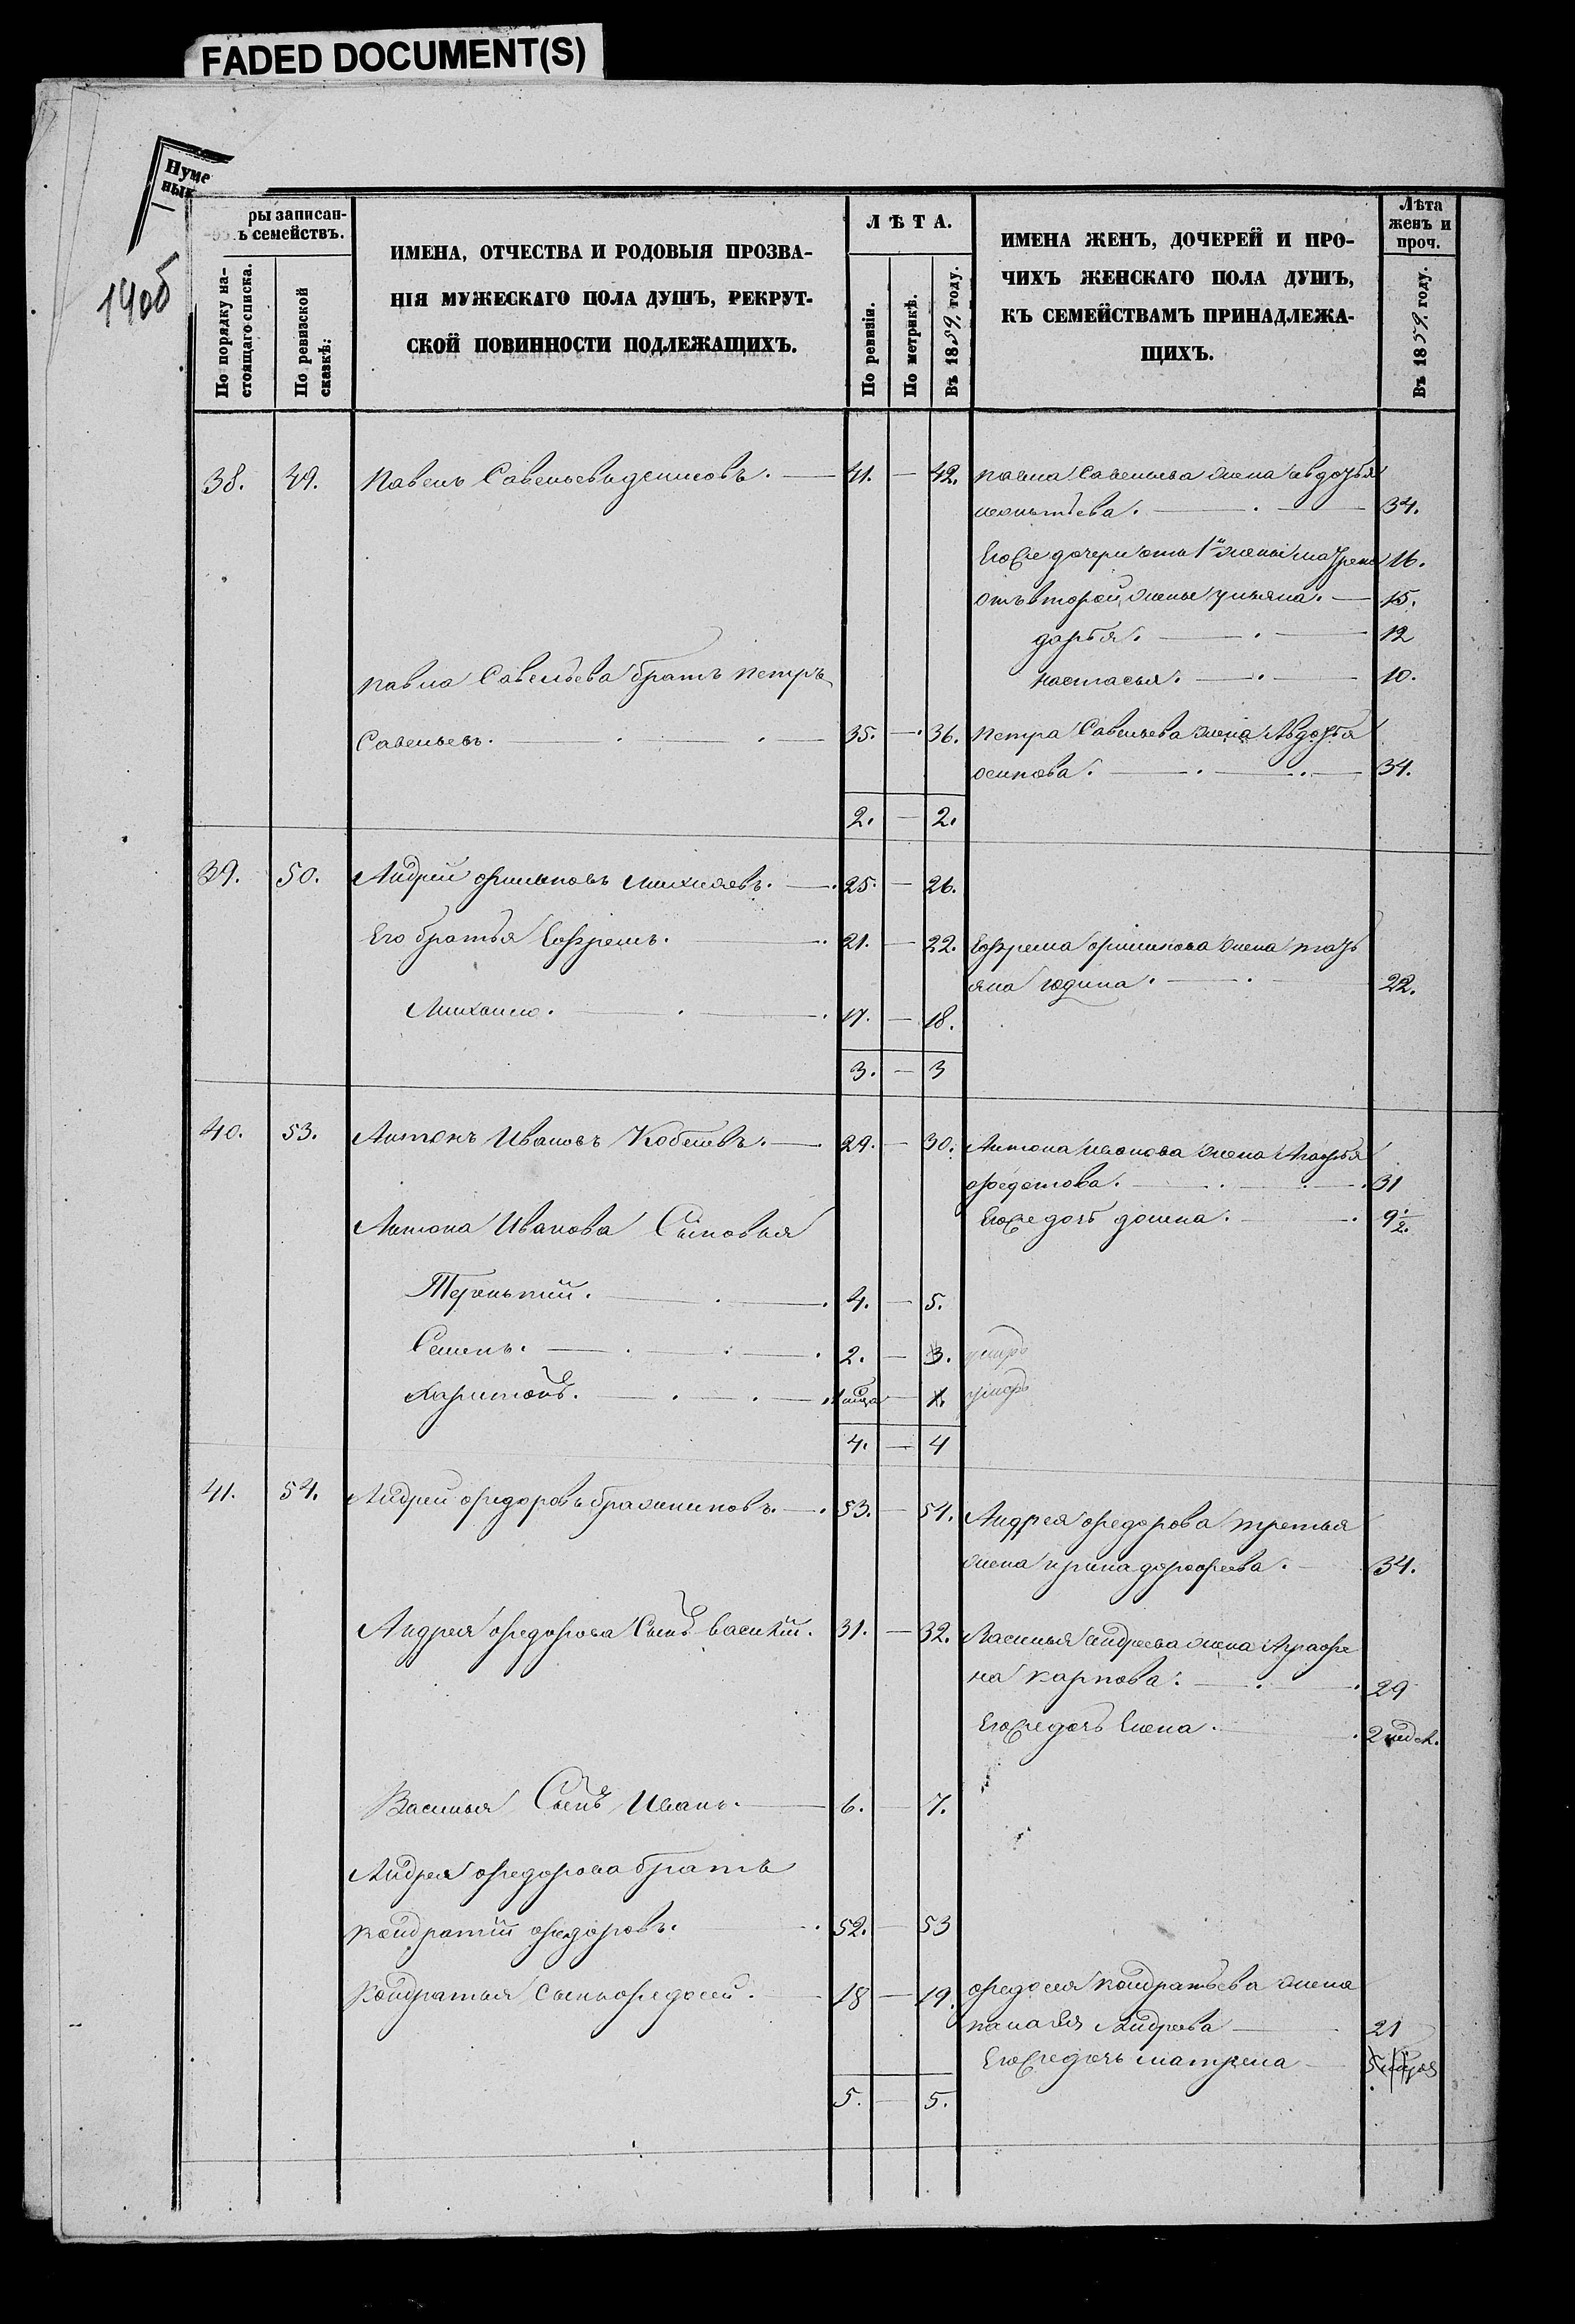 FADED DOCUMENT(S)
Нуме
ных
140б
ры записан-
ъ семействъ.
По порядку на-
стоящаго списка.
По ревизской
сказкѣ:
ИМЕНА, ОТЧЕСТВА И РОДОВЫЯ ПРОЗВА-
НІЯ МУЖЕСКАГО ПОЛА ДУШЪ, РЕКРУТ-
СКОЙ ПОВИННОСТИ ПОДЛЕЖАЩИХЪ.
ЛѢТА.
По ревизіи.
По метрикѣ.
Въ 1859. году.
ИМЕНА ЖЕНЪ, ДОЧЕРЕЙ И ПРО-
ЧИХЪ ЖЕНСКАГО ПОЛА ДУШЪ,
КЪ СЕМЕЙСТВАМЪ ПРИНАДЛЕЖА-
ЩИХЪ.
Лѣта
женъ и
проч.
Въ 1859. году.
38. 49. Павелъ Савельевъ денисовъ. — 41. — 42. павла Савельева жена авдотья
34.
Его же дочери отъ 1й жены матрена 16.
отъ второй жены ульяна. — 15.
дарья. — 12
павла Савельева братъ петръ
настасья. — 10.
Савельевъ. — 35. — 36. петра Савельева жена Авдотья
осипова. — 34.
2. — 2.
39. 50. Андрей филиповъ михѣевъ. — 25. — 26.
Его братья Ефремъ. — 21. — 22. Ефрема филипова жена тать
яна — 22.
Михаило. — 17. — 18.
3. — 3
40. 53. Антонъ Ивановъ — 29. — 30. Антона иванова жена Агафья
федотова. — 31
Антона Иванова Сыновья
Его же дочь домна. — 9 1/2.
Терентий. — 4. — 5.
Семенъ. — 2. — 3. умеръ
Харитонъ. — 1 мца — 1. умеръ
4. — 4
41. 54. Андрей федоровъ — 53. — 54. Андрея федорова третья
жена ирина дорофеева. — 34.
Андрея федорова Сынъ василій. 31. — 32. Василья андреева жена Аграфе
на карпова. — 29
Его же дочь Елена. — 2 нед.
Василья Сынъ Иванъ. — 6. — 7.
Андрея федорова братъ
кондратій федоровъ. — 52. — 53
Кондратья сынъ федосей. — 18 — 19. федосея кондратьева жена
палагея Андреева — 21
Его же дочь матрена — 5
5. — 5.